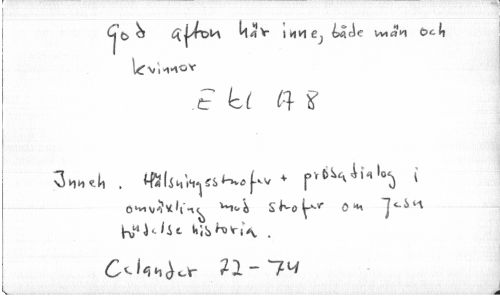 God afton här inne, både män och
kvinnor
E kl A 8
Inneh. Hälsningsstrofer + prosadialog i
omväxling med strofer om Jesu
födelsehistoria.
Celander 72-74